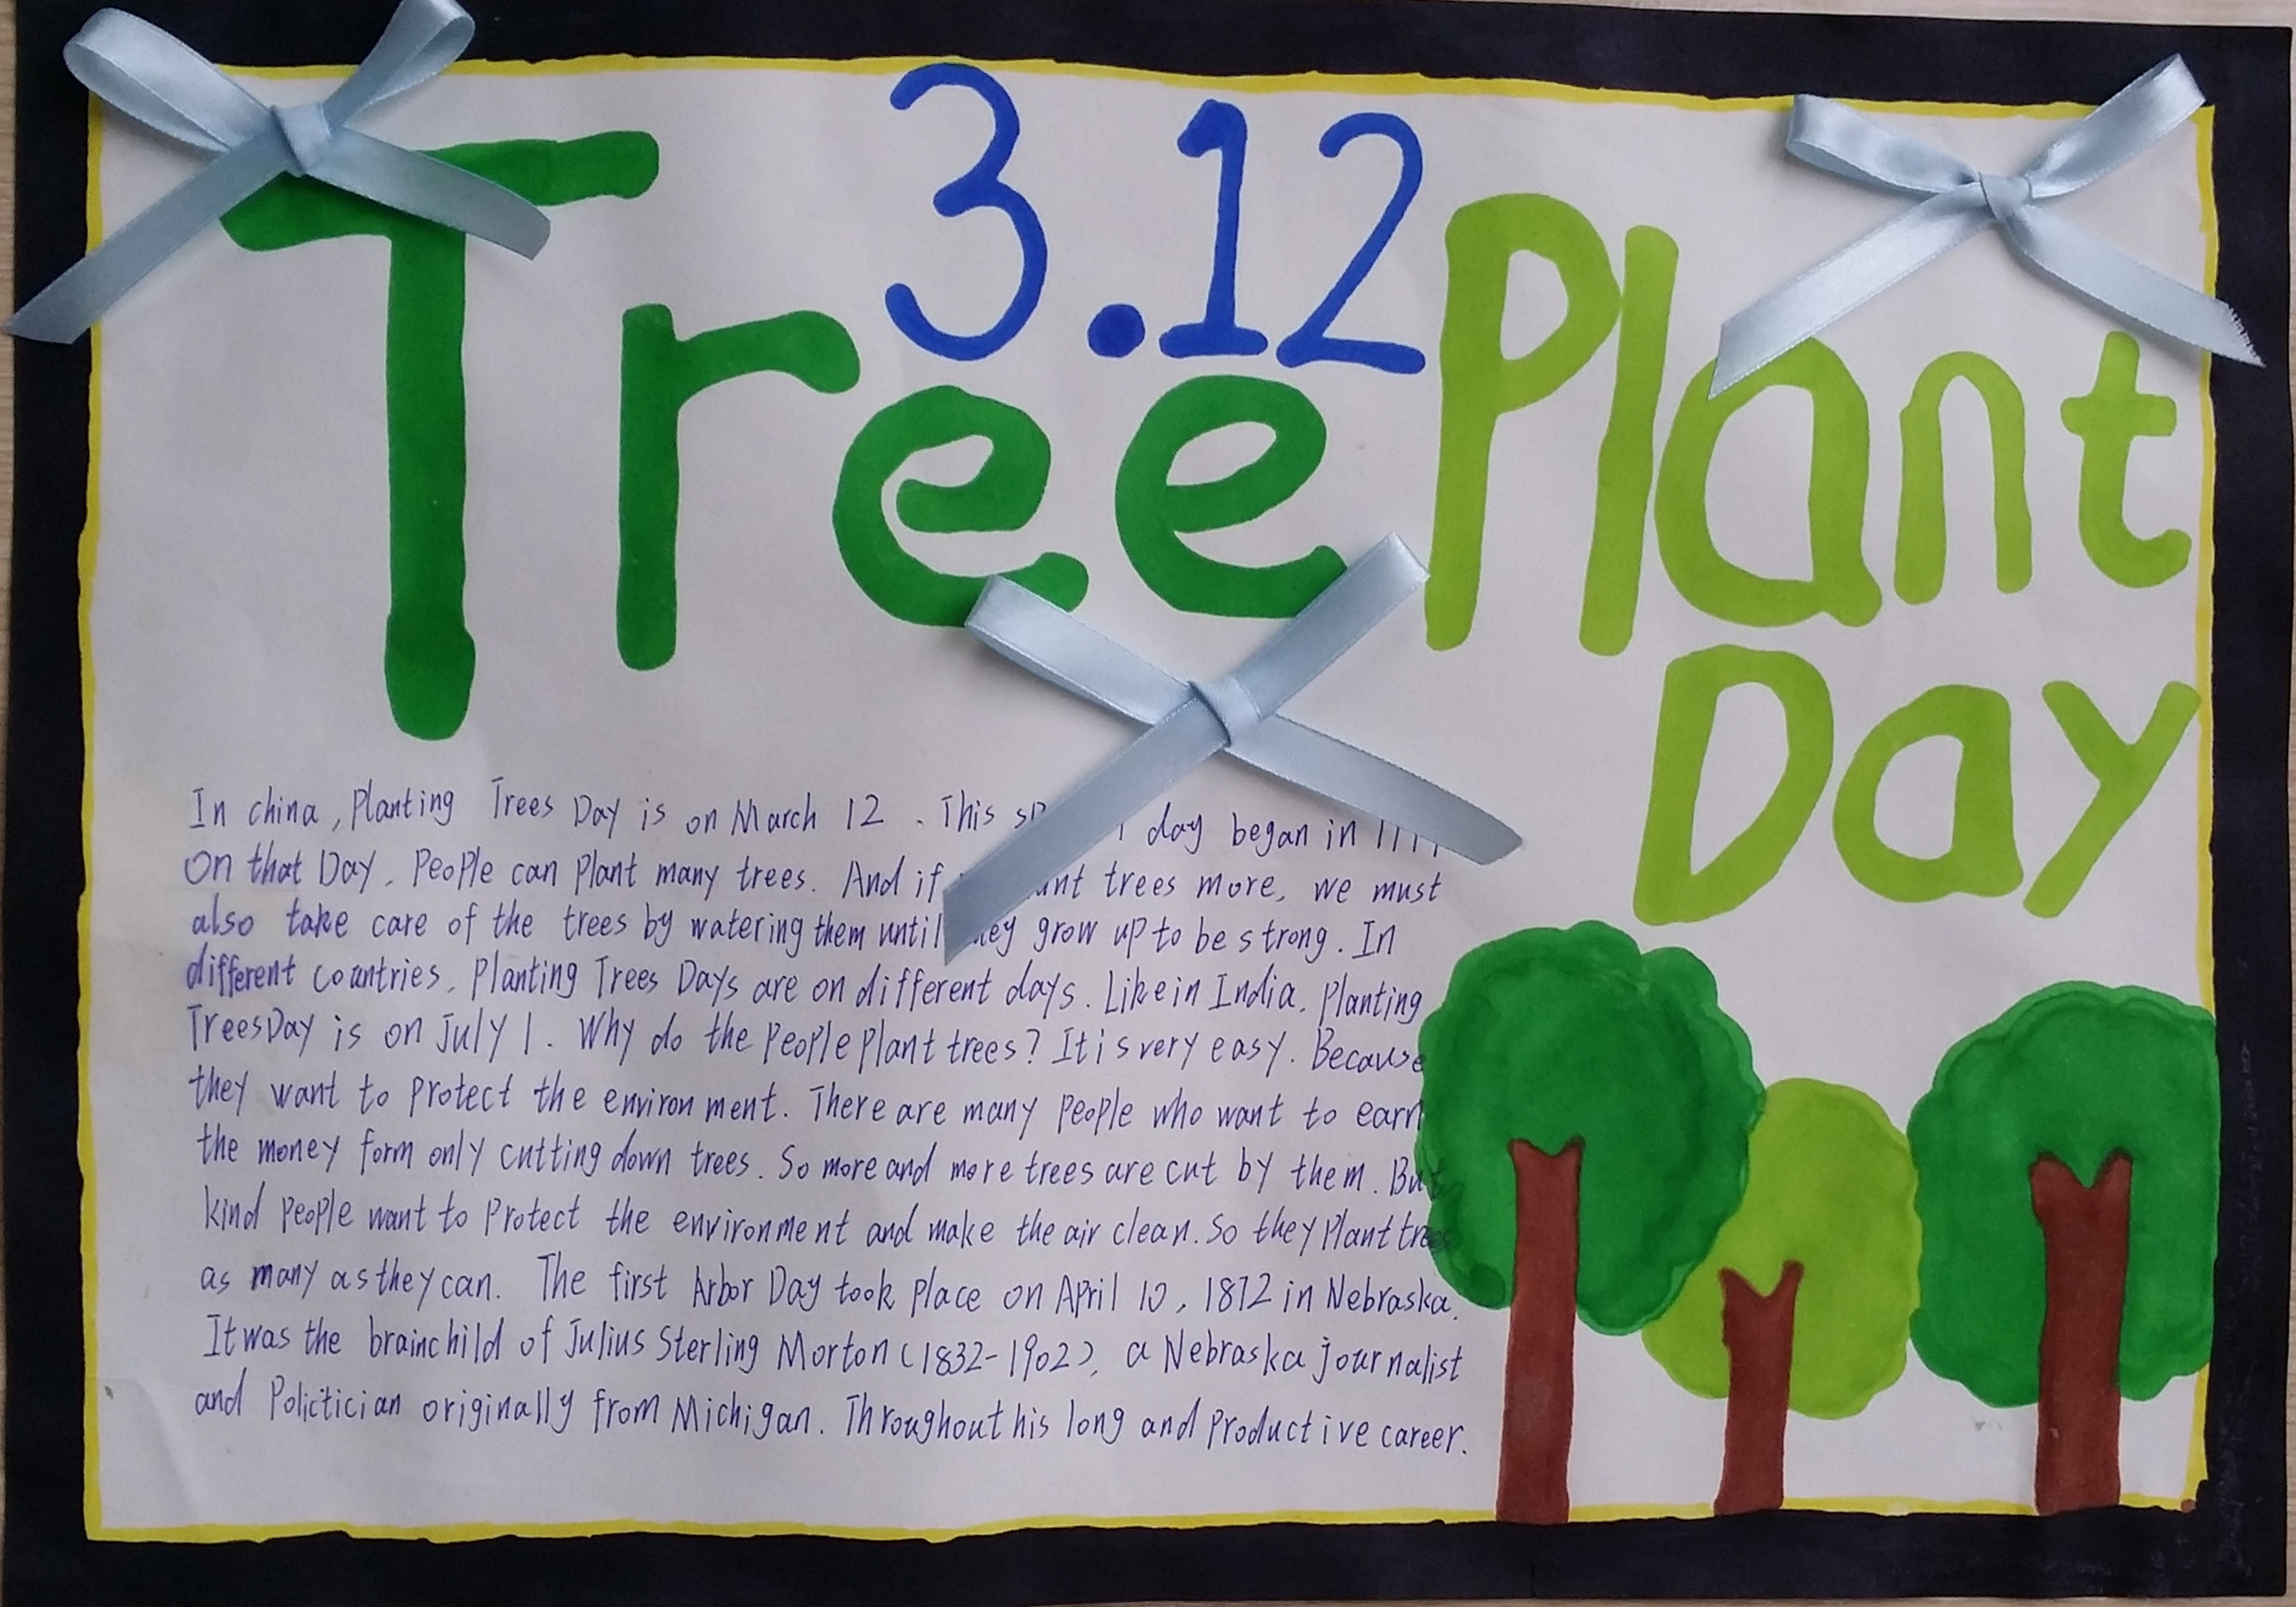 3.12
Tree Plant
Day
In china, Planting Trees Day is on March 12. This day began in
On that Day, People can Plant many trees. And if trees more, we must
also take care of the trees by watering them until they grow up to be strong. In
different countries, Planting Trees Days are on different days. Like in India, Planting
Trees Day is on July 1. Why do the People Plant trees? It is very easy. Because
they want to Protect the environment. There are many People who want to earn
the money form only cutting down trees. So more and more trees are cut by them. But
kind People want to Protect the environment and make the air clean. So they Plant trees
as many as they can. The first Arbor Day took Place on April 10, 1872 in Nebraska.
It was the brainchild of Julius Sterling Morton (1832-1902), a Nebraska journalist
and Polictician originally from Michigan. Throughout his long and Productive career.